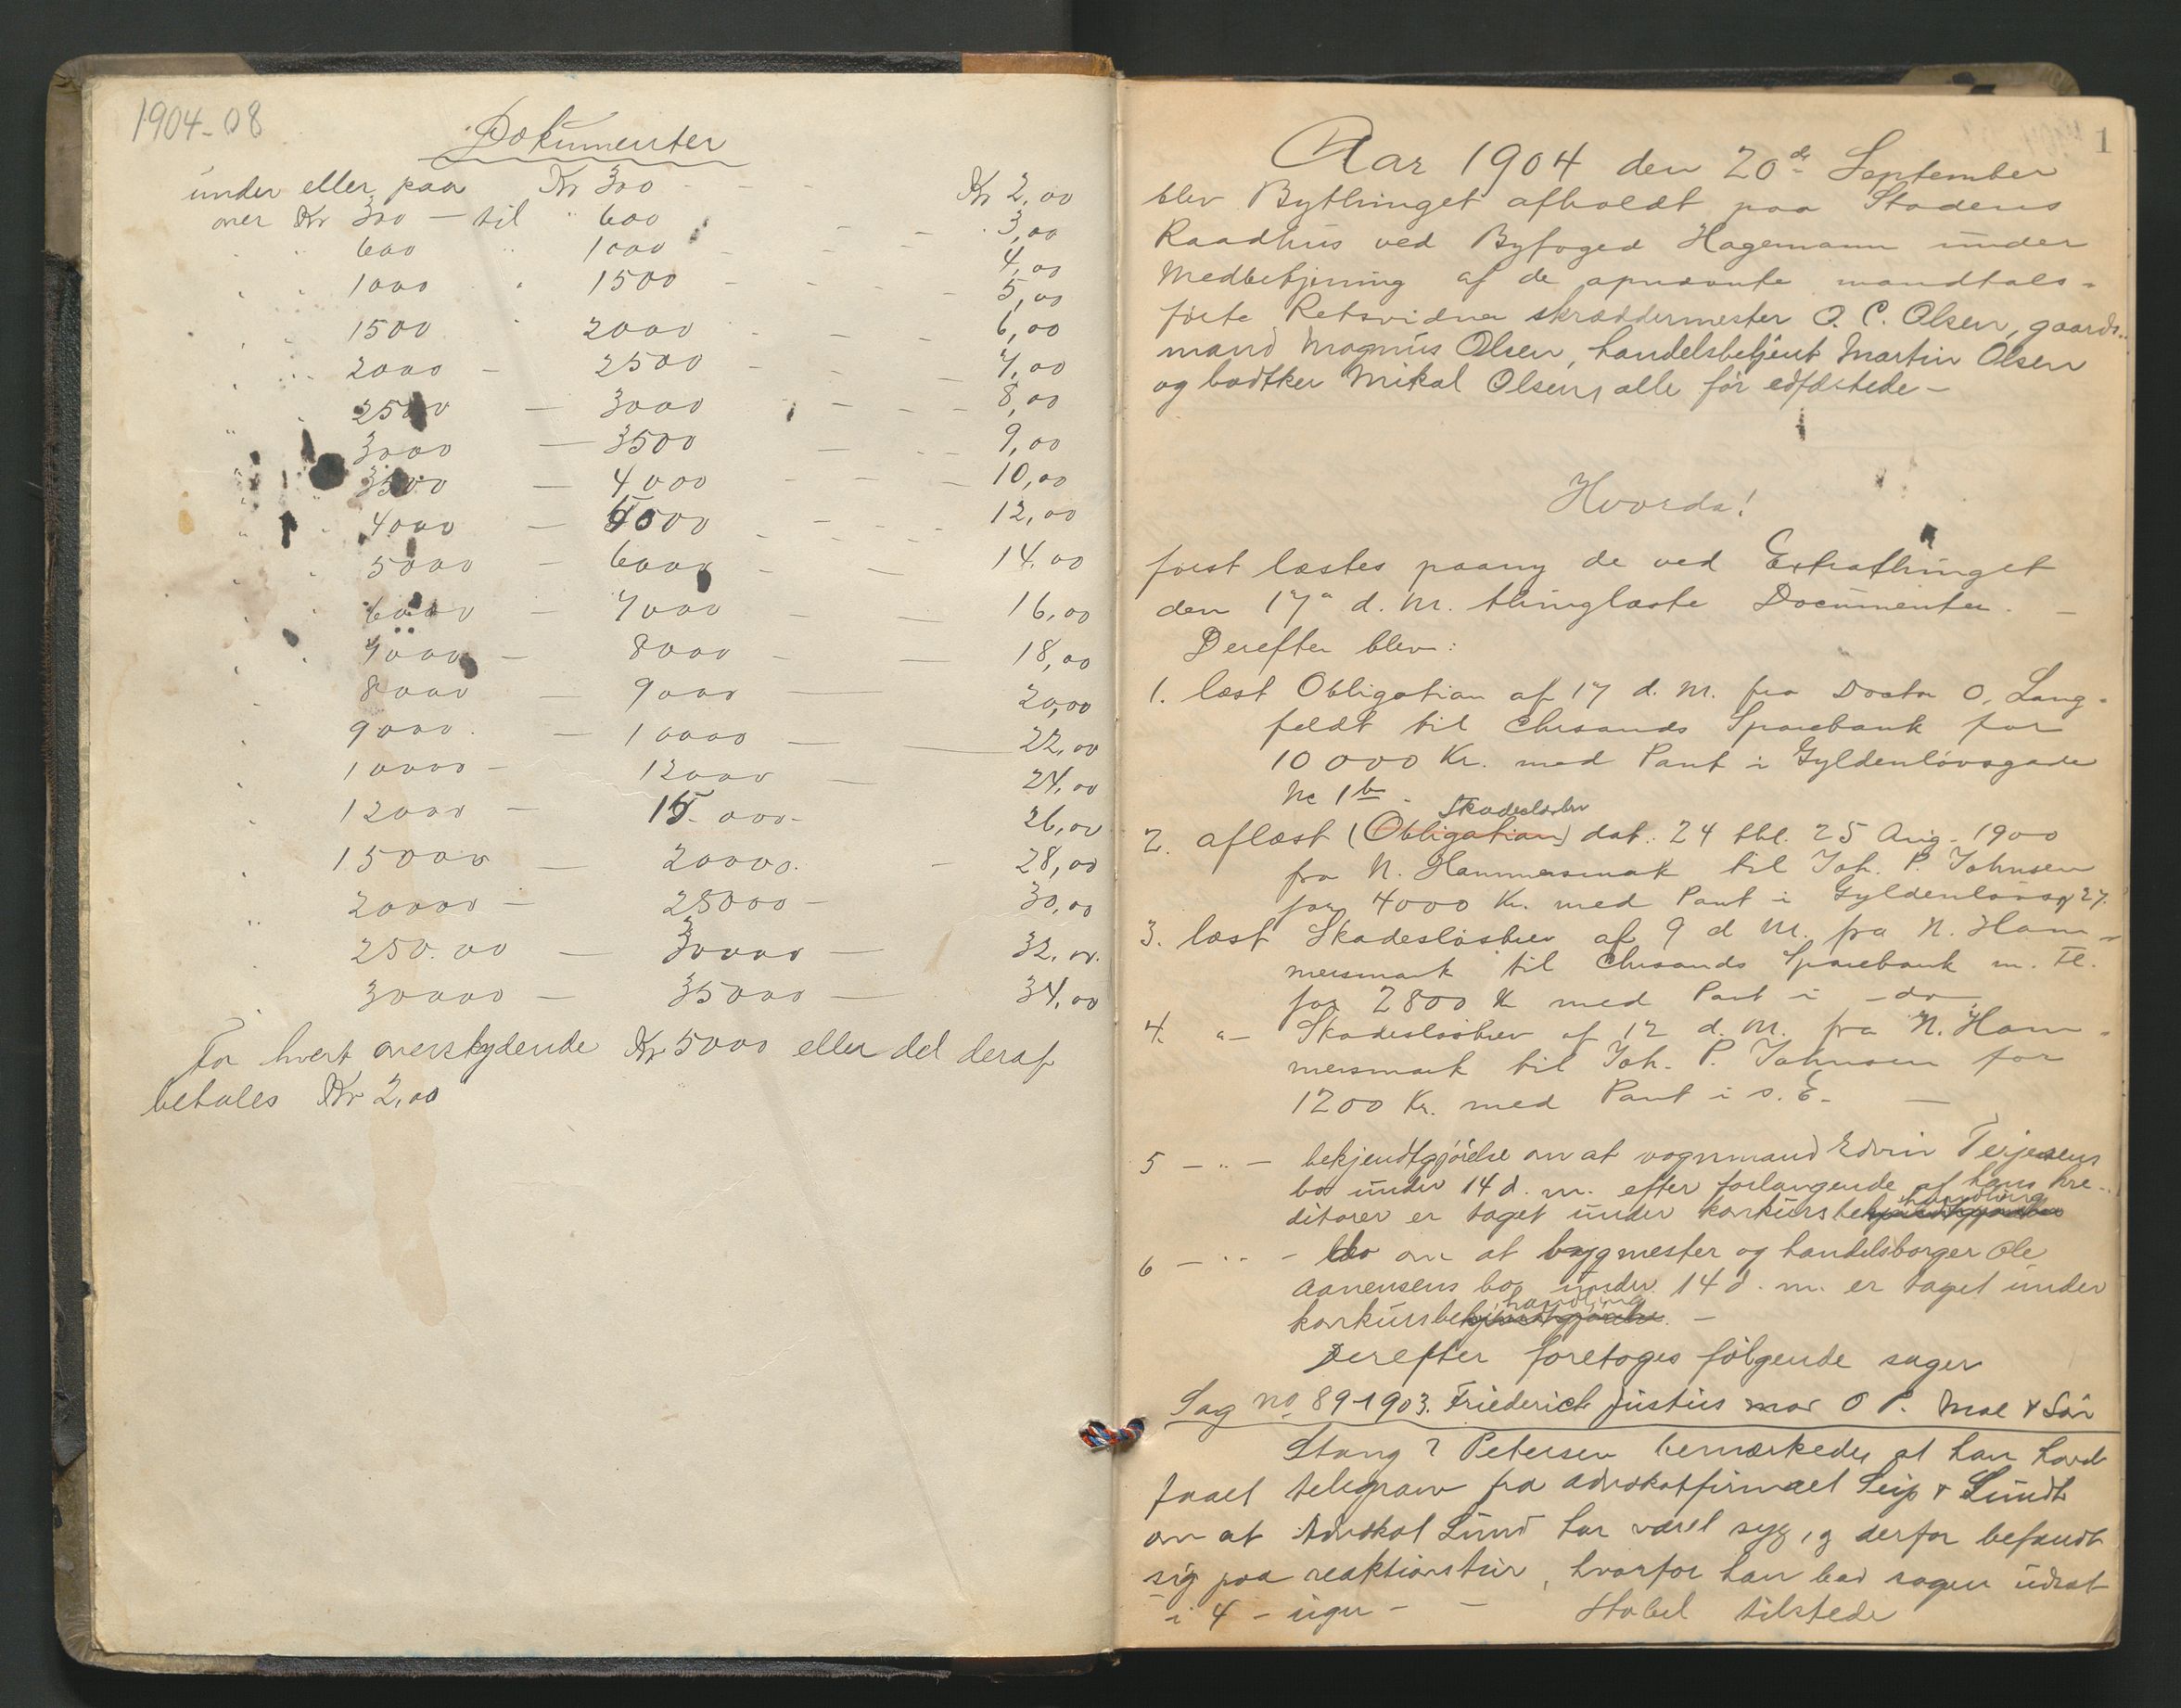 1904-08
Dokumenter
under eller paa Kr 300 - - - Kr 2,00
over Kr 300 — til " 600 - - 3,00
" " 600 " 1000 - - 4,00
" " 1000 " 1500 - - - - 5,00
" " 1500 " 2000 - - - 6,00
" " 2000 - 2500 - - - 7,00
2500 — 3000 - - - 8,00
" " 3000 — 3500 — - - 9,00
" " 3500 — 4000 - - - 10,00
" " 4000 — 5000 - - - 12,00
" " 5000 - 6000 - — 14.00
" " 6000 — 7000 — — 16,00
" " 7000 — 8000 - — 18,00
" 8000 — 9000 — — 20,00
9000 — 10000 — — 22,00
" 10000 - 12000 — 24,00
" 12000 — 15.000 - 26,00
" 15000 — 20000. - 28,00
" 20000 - 25000 - 30,00
250.00 — 30000 — 32.00.
" 30000 — 35000 — 34,00
For hvert overskydende Kr 5000 eller del deraf
betales Kr 2,00
1
Aar 1904 den 20de September
blev Bythinget afholdt paa Stadens
Raadhus ved Byfoged Hagemann under
Medbetjening af de opnævnte mandtals-
førte Retsvidner skræddermester O. C. Olsen, gaards-
mand Magnus Olsen, handelsbetjent Martin Olsen
og bødtker Mikal Olsen, alle før edfæstede -
Hvorda!
først læstes paany de ved Extrathinget
den 17de d. M. thinglæste Documenter. —
Derefter blev:
1. læst Obligation af 17 d. M. fra Doctor O. Lang-
feldt til Chrsands Sparebank for
10 000 Kr. med Pant i Gyldenløvsgade
No 1b.
Skadesløsbrev
2. aflæst (Obligation) dat. 24 thl. 25 Aug. 1900
fra N. Hammersmark til Joh. P. Johnsen
for 4000 Kr. med Pant i Gyldenløvsg 27.
3. læst Skadesløsbrev af 9 d M. fra N. Ham-
mersmark til Chrsands Sparebank m. Fl.
for 2800 Kr med Pant i - do -
4. "- Skadesløsbrev af 12 d. M. fra N. Ham-
mersmark til Joh. P. Johnsen for
1200 Kr. med Pant i s. E. —
5 - " - bekjendtgjørelse om at vognmand Edvin Terjesens
bo under 14 d. m. efter forlangende af hans kre-
handling
ditorer er taget under konkursbekjendtgjørelse
6 - " - do om at bygmester og handelsborger Ole
Aanensens bo under 14 d. m. er taget under
handling
konkursbekjendtgjørelse. -
Derefter foretoges følgende sager
Sag no 89-1903. Friederich Justus mod O P. Moe & Søn
Stang Petersen bemærkede, at han havde
faaet telegram fra advokatfirmaet Seip & Lundt
om at Advokat Lund har været syg, og derfor befandt
sig paa reaktionstur, hvorfor han bad sagen udsat
i 4 - uger - - Stabel tilstede